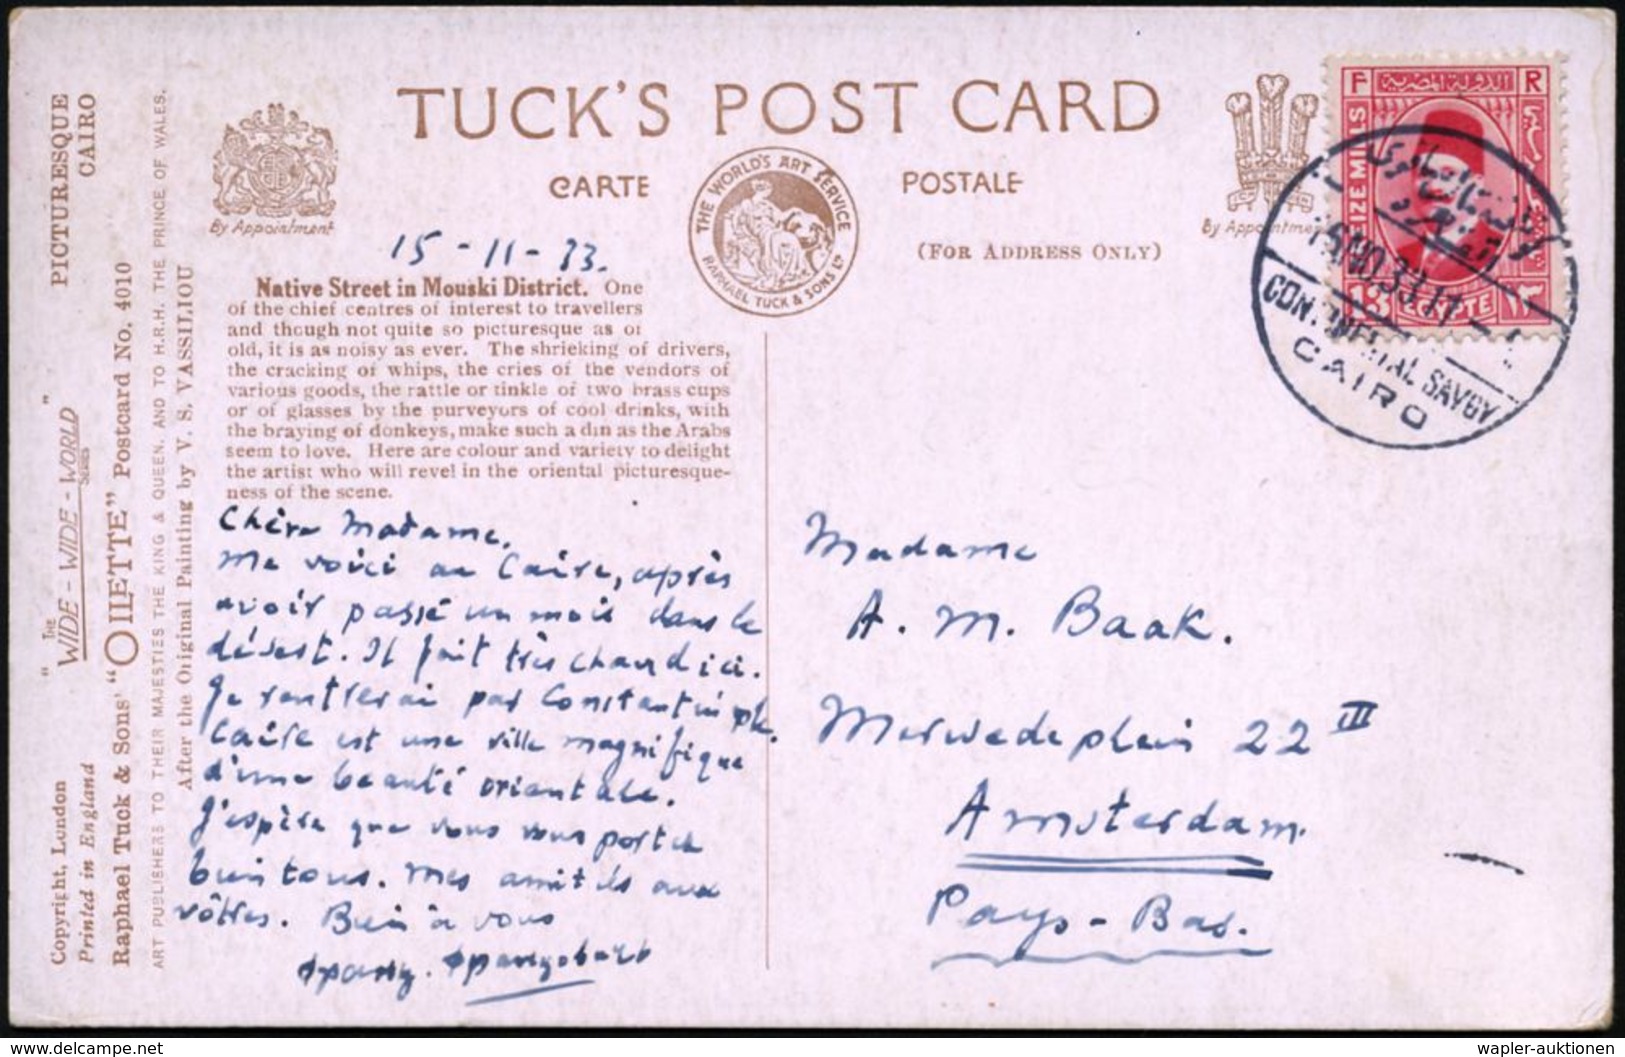 TUCK'S POST CARD
CARTE POSTALE
By Appointment
THE WORLD'S ART SERVICE
RAPHAEL TUCK & SONS LD
(FOR ADDRESS ONLY)
15-11-33.
Native Street in Mouski District. One
of the chief centres of interest to travellers
and though not quite so picturesque as of
old, it is as noisy as ever. The shrieking of drivers,
the cracking of whips, the cries of the vendors of
various goods, the rattle or tinkle of two brass cups
or of glasses by the purveyors of cool drinks, with
the braying of donkeys, make such a din as the Arabs
seem to love. Here are colour and variety to delight
the artist who will revel in the oriental picturesque-
ness of the scene.
Chère Madame.
Me voici au Caire, après
avoir passé un mois dans le
désert. Il fait très chaud ici.
Je rentrerai par Constantinople.
Caire est une ville magnifique
d'une beauté orientale.
J'espère que vous vous portez
bien tous. Mes amitiés aux
vôtres. Bien à vous
Madame
A. M. Baak.
Merwedeplein 22 III
Amsterdam.
Pays-Bas.
PICTURESQUE
CAIRO
"THE
WIDE-WIDE-WORLD"
SERIES
Copyright, London
Printed in England
Raphael Tuck & Sons' "OILETTE" Postcard No. 4010
ART PUBLISHERS TO THEIR MAJESTIES THE KING & QUEEN, AND TO H.R.H. THE PRINCE OF WALES.
After the Original Painting by V. S. VASSILIOU
By Appointment
F R
الدولة المصرية
TREIZE MILLS
13 EGYPTE ١٣
15 NO. 33. 11
CONTINENTAL SAVOY
CAIRO
delcampe.net
wapler-auktionen